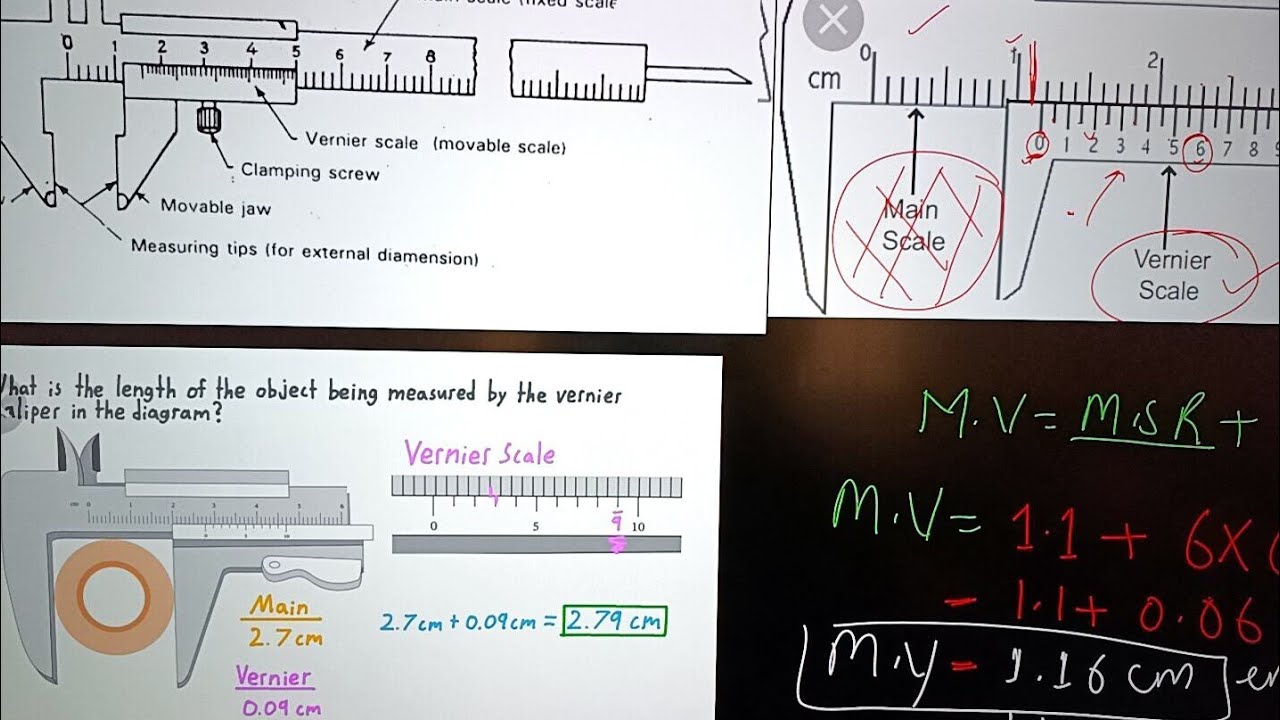 0 1 2 3 4 5 6 7 8
Vernier scale (movable scale)
Clamping screw
Movable jaw
Measuring tips (for external diamension)
0 1 2
cm
0 1 2 3 4 5 6 7 8
Main
Scale
Vernier
Scale
What is the length of the object being measured by the vernier
caliper in the diagram?
Vernier Scale
0 5 10
9
cm 0 1 2 3 4 5 6
0 5 10
Main
2.7cm
Vernier
0.09 cm
2.7cm + 0.09cm = 2.79 cm
M.V = M.S R +
M.V = 1.1 + 6 X
= 1.1 + 0.06
M.V = 1.16 cm